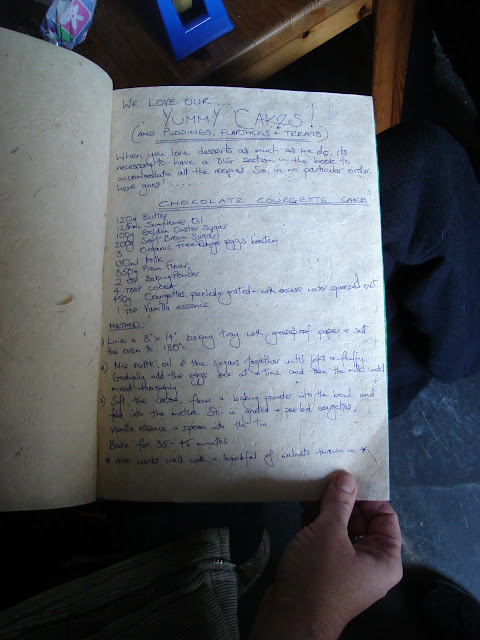 WE LOVE OUR...
YUMMY CAKES!
(AND PUDDINGS, FLAPJACKS + TREATS)
When you love desserts as much as we do, its
necessary to have a BIG section in the book to
accomodate all the recipes. So, in no particular order,
here goes!.....
CHOCOLATE COURGETTE CAKE
125g Butter
125ml Sunflower Oil
100g Golden Caster Sugar
200g Soft Brown Sugar
3 Organic free range eggs beaten
130ml Milk
350g Plain flour
2 tsp Baking Powder
4 TBSP cocoa
450g Courgettes, peeled + grated + with excess water squeezed out
1 TSP Vanilla essence
METHOD:
1) Line a 8" x 14" baking tray with greaseproof paper + set
the oven to 180°
2) Mix butter, oil & the sugars together until light & fluffy.
Gradually add the eggs one at a time and then the milk until
mixed thoroughly
3) Sift the cocoa, flour + baking powder into the bowl and
fold into the mixture. Stir in grated + peeled courgettes,
Vanilla essence + spoon into the tin
Bake for 35-45 minutes.
* Also works well with a handful of walnuts thrown in *